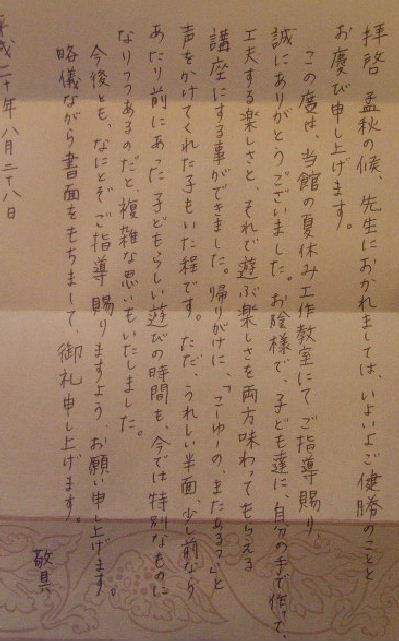 拝啓 孟秋の候、先生におかれましては、いよいよご健勝のことと
お慶び申し上げます。
この度は、当館の夏休み工作教室にてご指導賜り、
誠にありがとうございました。お陰様で、子ども達に、自分の手で作って
工夫する楽しさと、それで遊ぶ楽しさを両方味わってもらえる
講座にする事ができました。帰りがけに、「こーゆーの、またあるぅ」と
声をかけてくれた子もいた程です。ただ、うれしい半面、少し前なら
あたり前にあった子どもらしい遊びの時間も、今では特別なものに
なりつつあるのだと複雑な思いもいたしました。
今後とも、なにとぞご指導賜りますよう、お願い申し上げます。
略儀ながら書面をもちまして、御礼申し上げます。
敬具
平成二十年八月二十八日